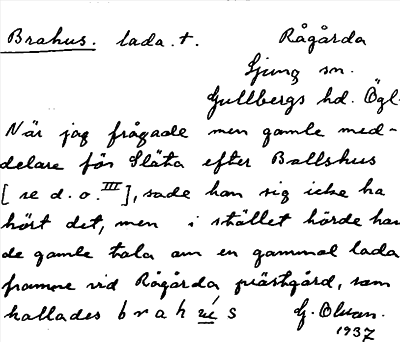 Brahus. lada. t. Rågårda
Ljung sn.
Gullbergs hd. Ögl.
När jag frågade men gamle med-
delare för Släta efter Ballshus
[se d. o. III], sade han sig icke ha
hört det, men i stället hörde han
de gamle tala om en gammal lada
framme vid Rågårda prästgård, som
kallades b r a h ú s G. Olson.
1937